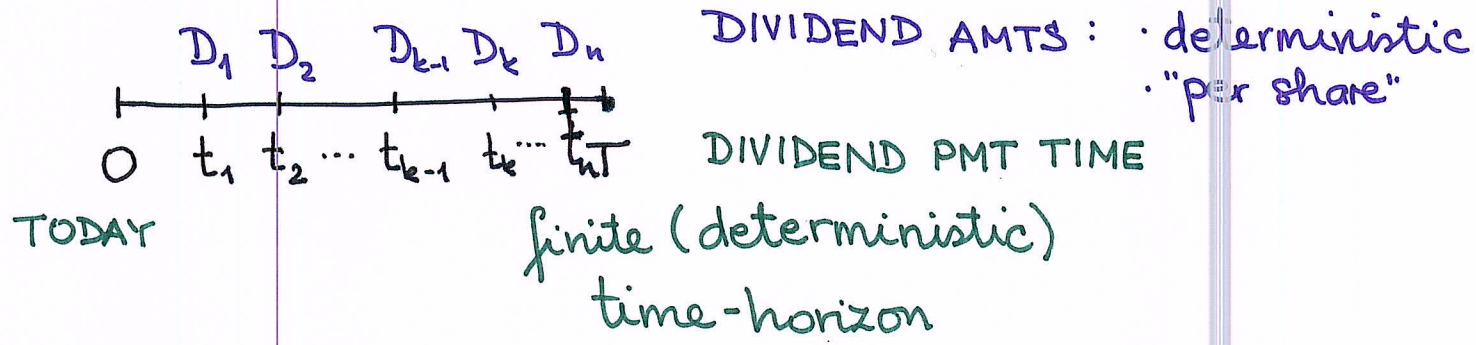 D₁ D₂ D_{k-1} D_k D_n DIVIDEND AMTS : · deterministic
· "per share"
0 t₁ t₂ ... t_{k-1} t_k ... t_n T DIVIDEND PMT TIME
TODAY finite (deterministic)
time-horizon